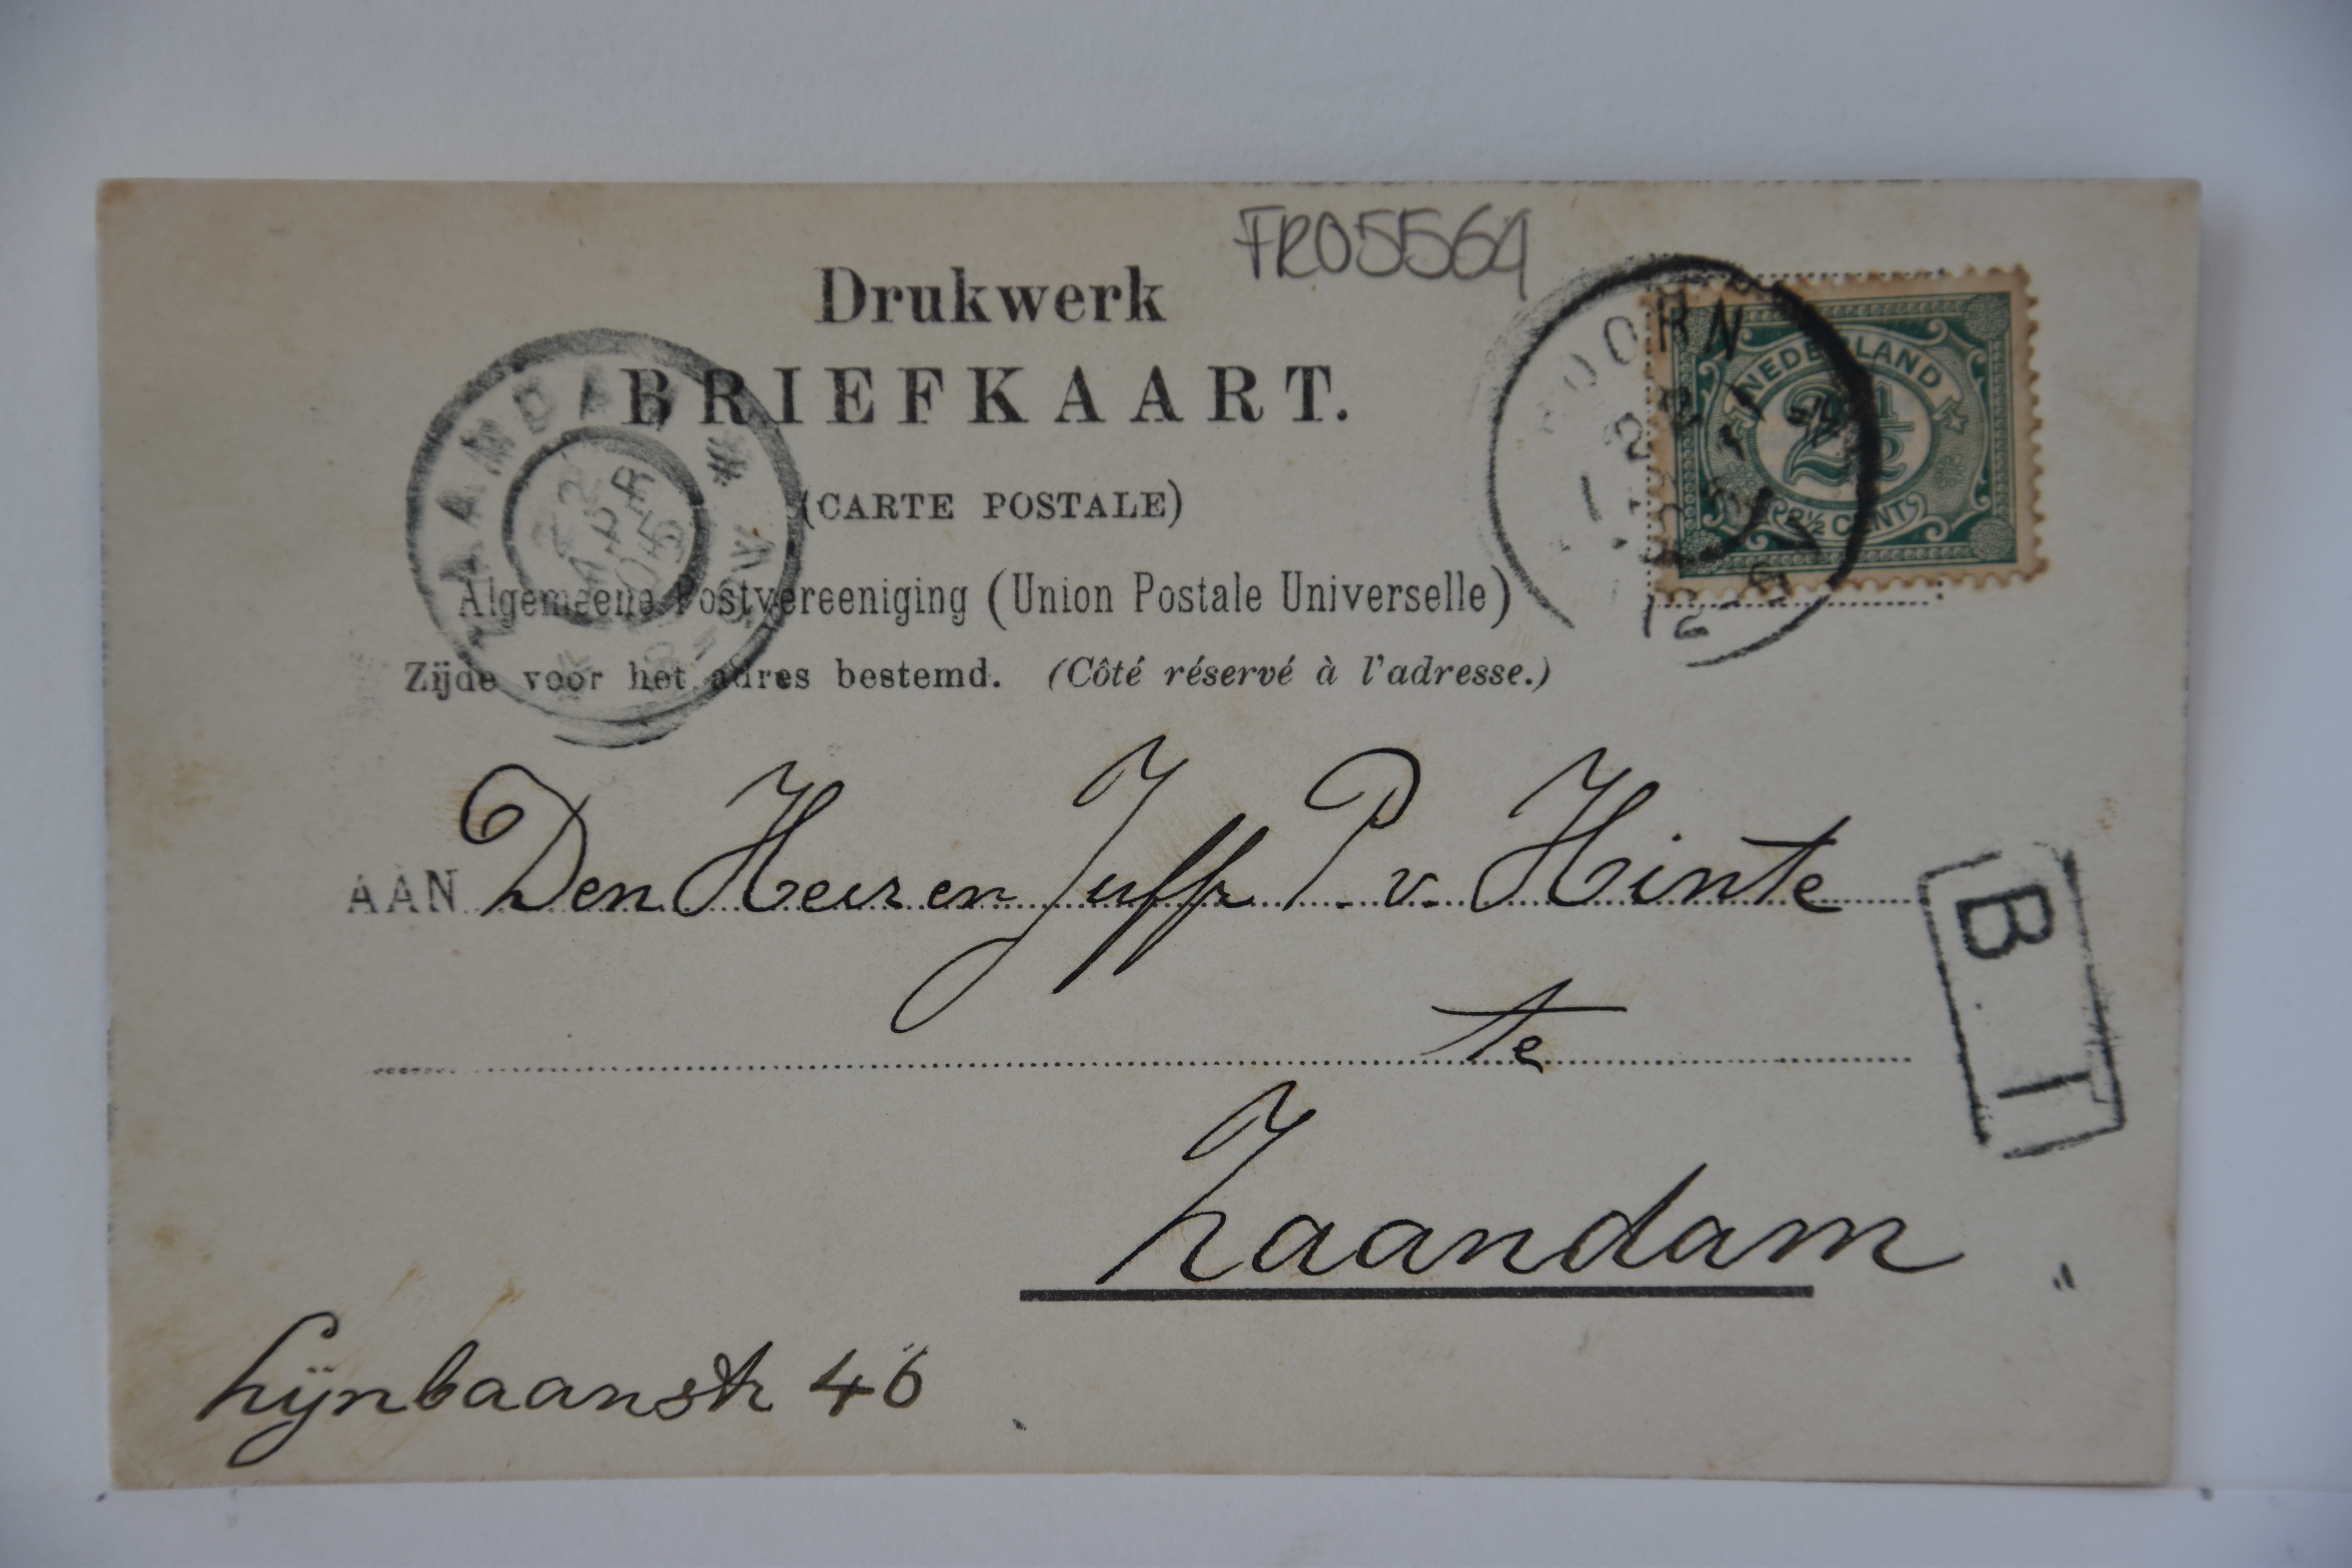 FRO5564
Drukwerk
BRIEFKAART.
(CARTE POSTALE)
Algemeene Postvereeniging (Union Postale Universelle)
Zijde voor het adres bestemd. (Côté réservé à l'adresse.)
ZAANDAM
22 APR 05
HOORN
NEDERLAND
2½
2½ CENT
AAN Den Heer en Juffr P. v. Hinte
te
Zaandam
Lijnbaanstr 46
B T